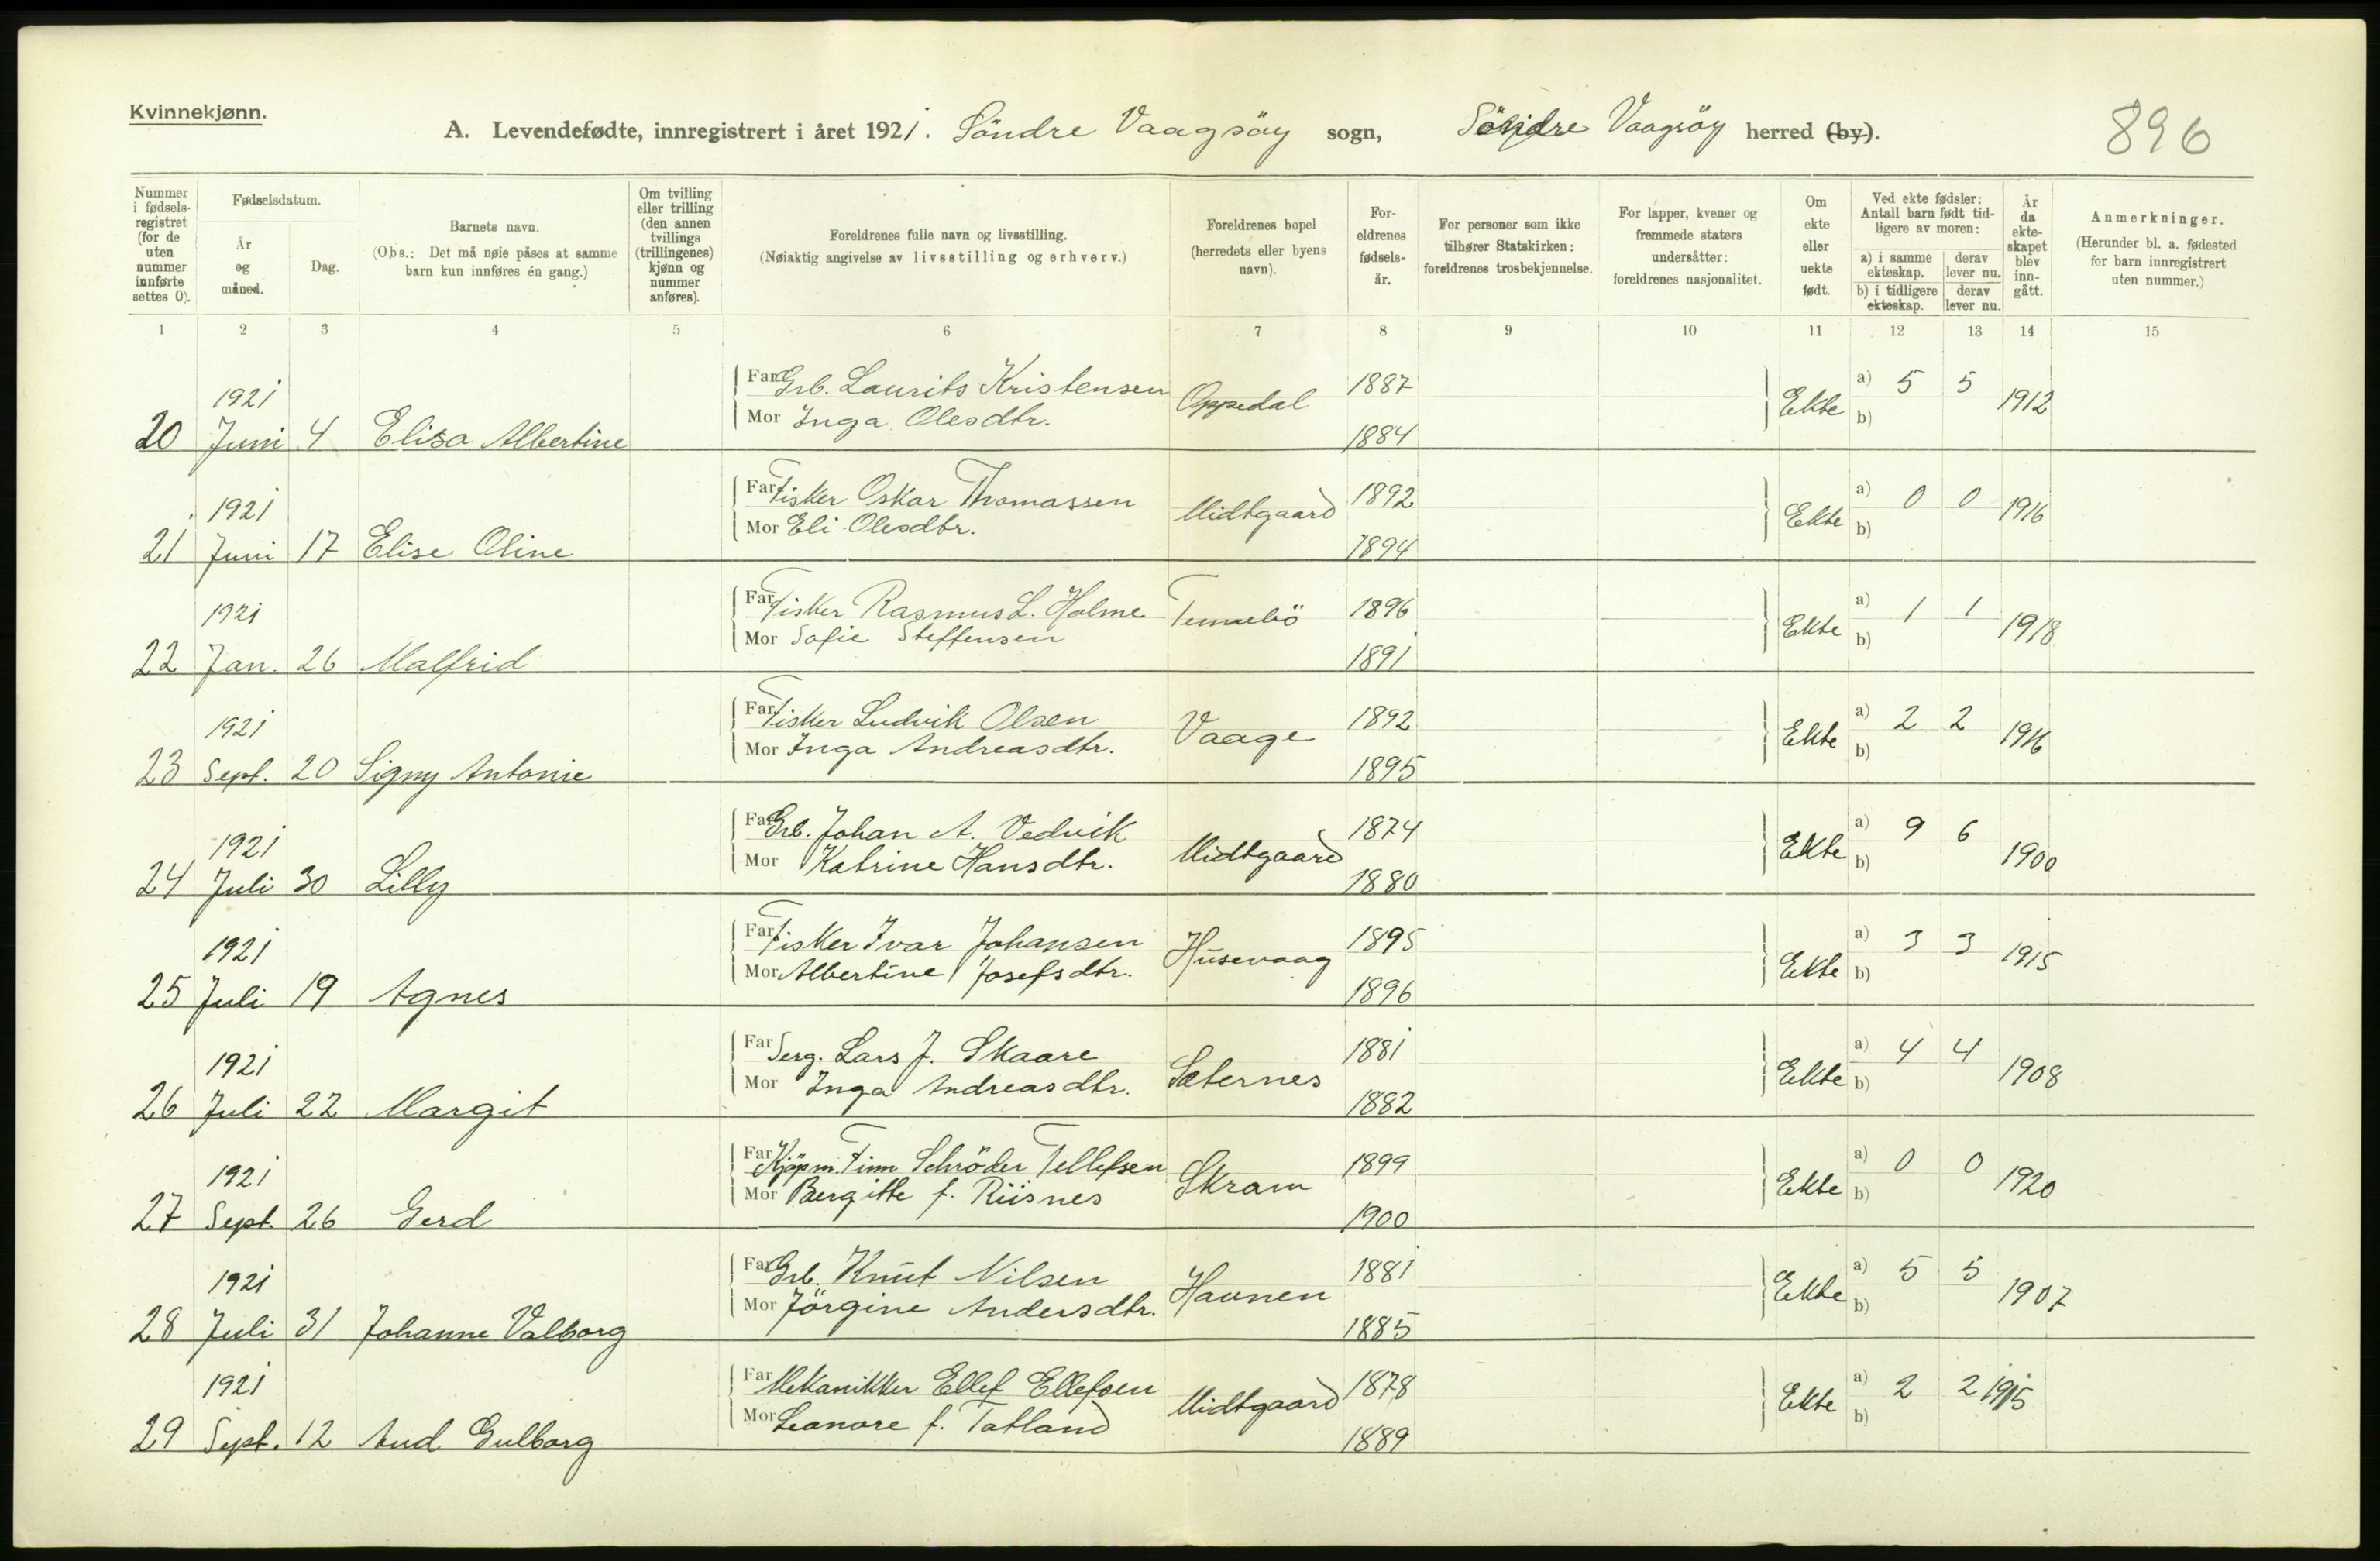 Kvinnekjønn.
A. Levendefødte, innregistrert i året 1921. Söndre Vaagsöy sogn, Söndre Vaagsöy herred (by).
896
Nummer i fødsels-registret (for de uten nummer innførte settes 0).
Fødselsdatum.
År og måned.
Dag.
Barnets navn.
(Obs.: Det må nøie påses at samme barn kun innføres én gang.)
Om tvilling eller trilling (den annen tvillings (trillingenes) kjønn og nummer anføres).
Foreldrenes fulle navn og livsstilling.
(Nøiaktig angivelse av livsstilling og erhverv.)
Foreldrenes bopel (herredets eller byens navn).
For-eldrenes fødsels-år.
For personer som ikke tilhører Statskirken: foreldrenes trosbekjennelse.
For lapper, kvener og fremmede staters undersåtter: foreldrenes nasjonalitet.
Om ekte eller uekte født.
Ved ekte fødsler: Antall barn født tid-ligere av moren:
a) i samme ekteskap. derav lever nu.
b) i tidligere ekteskap. derav lever nu.
År da ekte-skapet blev inn-gått.
Anmerkninger.
(Herunder bl. a. fødested for barn innregistrert uten nummer.)
1 2 3 4 5 6 7 8 9 10 11 12 13 14 15
20 1921 Juni 4 Elisa Albertine Far Grb. Laurits Kristensen Oppedal 1887 Ekte a) 5 5 1912
Mor Inga Olesdtr. 1884 b)
21 1921 Juni 17 Elise Oline Far Fisker Oskar Thomassen Midtgaard 1892 Ekte a) 0 0 1916
Mor Eli Olesdtr. 1894 b)
22 1921 Jan. 26 Malfrid Far Fisker Rasmus L. Holme Tennebö 1896 Ekte a) 1 1 1918
Mor Sofie Steffensen 1891 b)
23 1921 Sept. 20 Signy Antonie Far Fisker Ludvik Olsen Vaage 1892 Ekte a) 2 2 1916
Mor Inga Andreasdtr. 1895 b)
24 1921 Juli 30 Lilly Far Grb. Johan A. Vedvik Midtgaard 1874 Ekte a) 9 6 1900
Mor Katrine Hansdtr. 1880 b)
25 1921 Juli 19 Agnes Far Fisker Ivar Johansen Husevaag 1895 Ekte a) 3 3 1915
Mor Albertine Josefsdtr. 1896 b)
26 1921 Juli 22 Margit Far Serg. Lars J. Skaare Sæternes 1881 Ekte a) 4 4 1908
Mor Inga Andreasdtr. 1882 b)
27 1921 Sept. 26 Gerd Far Kjöpm. Finn Schröder Tellefsen Skram 1899 Ekte a) 0 0 1920
Mor Bergitte f. Riisnes 1900 b)
28 1921 Juli 31 Johanne Valborg Far Grb. Knut Nilsen Havnen 1881 Ekte a) 5 5 1907
Mor Jörgine Andersdtr. 1885 b)
29 1921 Sept. 12 Aud Gulborg Far Mekanikker Ellef Ellefsen Midtgaard 1878 Ekte a) 2 2 1915
Mor Leonore f. Totland 1889 b)